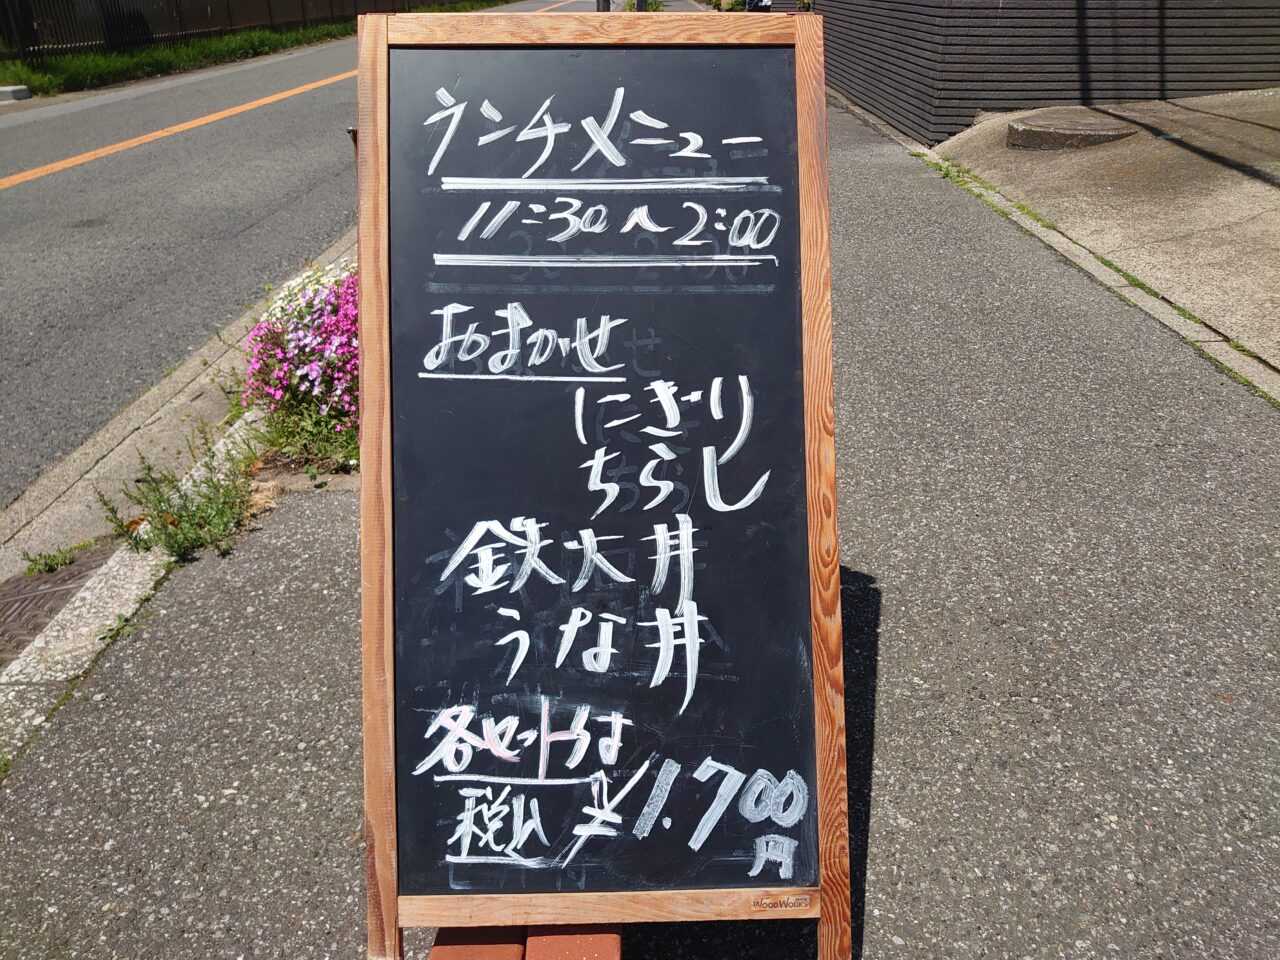 ランチメニュー
11:30〜2:00
おまかせ
にぎり
ちらし
鉄火丼
うな丼
各セット
税込 ¥1.700
円
WOOD WORKS